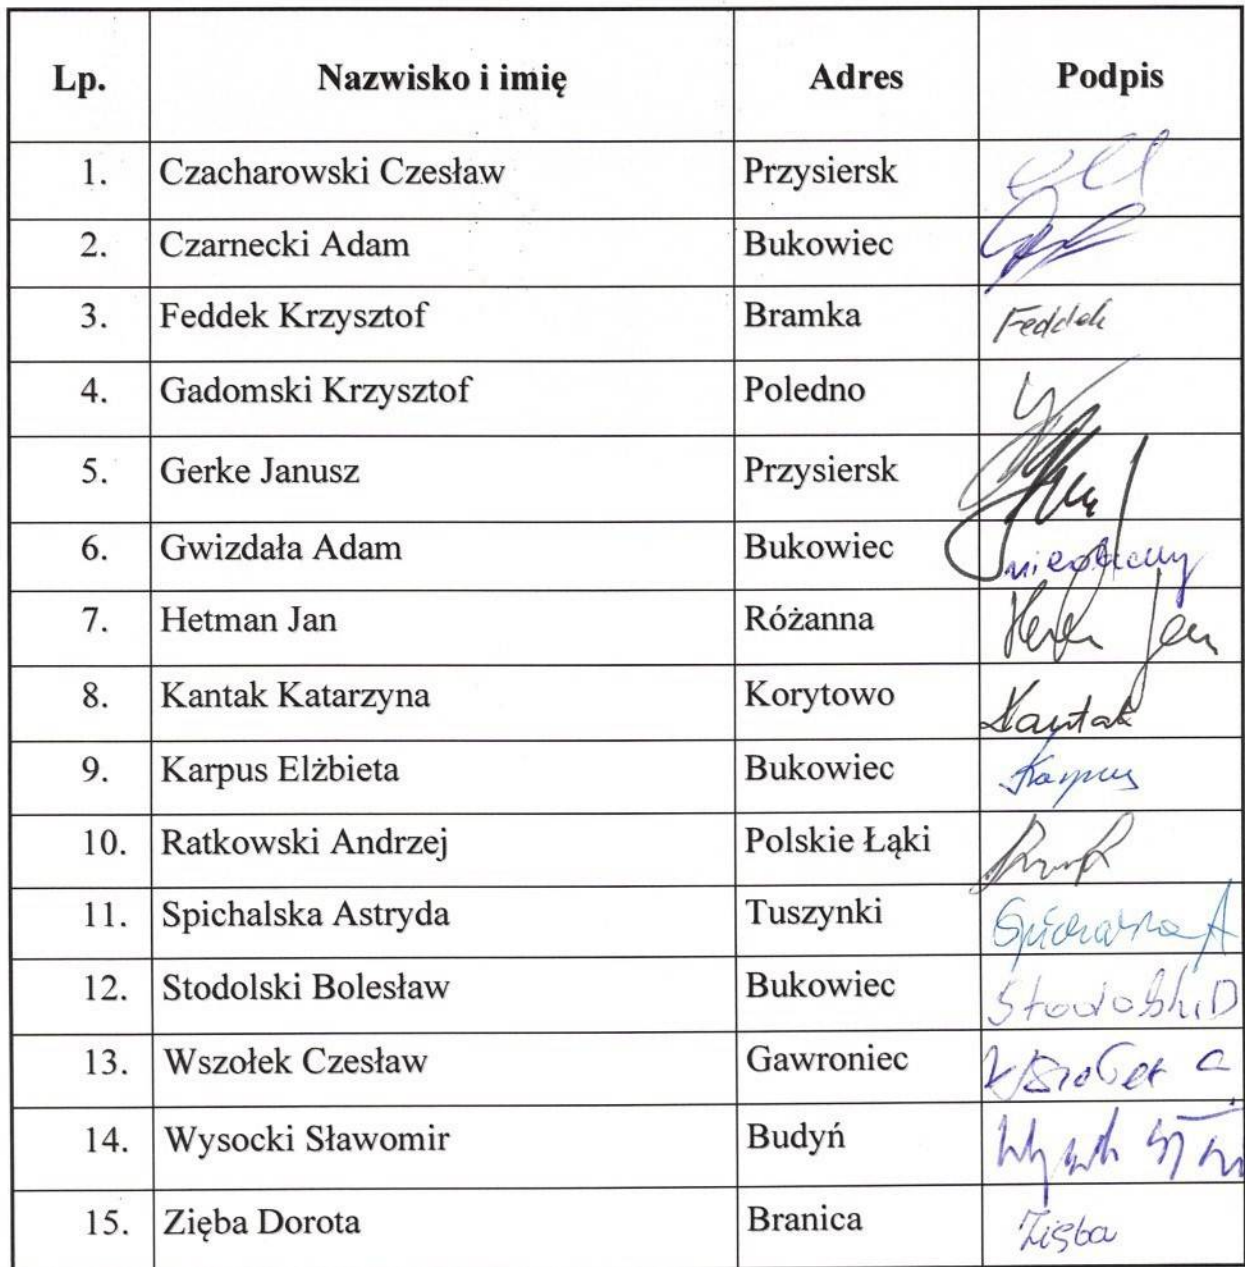 Lp. Nazwisko i imię Adres Podpis
1. Czacharowski Czesław Przysiersk
2. Czarnecki Adam Bukowiec
3. Feddek Krzysztof Bramka Feddek
4. Gadomski Krzysztof Poledno
5. Gerke Janusz Przysiersk
6. Gwizdała Adam Bukowiec nieobecny
7. Hetman Jan Różanna Jan
8. Kantak Katarzyna Korytowo Kantak
9. Karpus Elżbieta Bukowiec Karpus
10. Ratkowski Andrzej Polskie Łąki
11. Spichalska Astryda Tuszynki Spichalska A
12. Stodolski Bolesław Bukowiec Stodolski B
13. Wszołek Czesław Gawroniec Wszołek C
14. Wysocki Sławomir Budyń
15. Zięba Dorota Branica Zięba